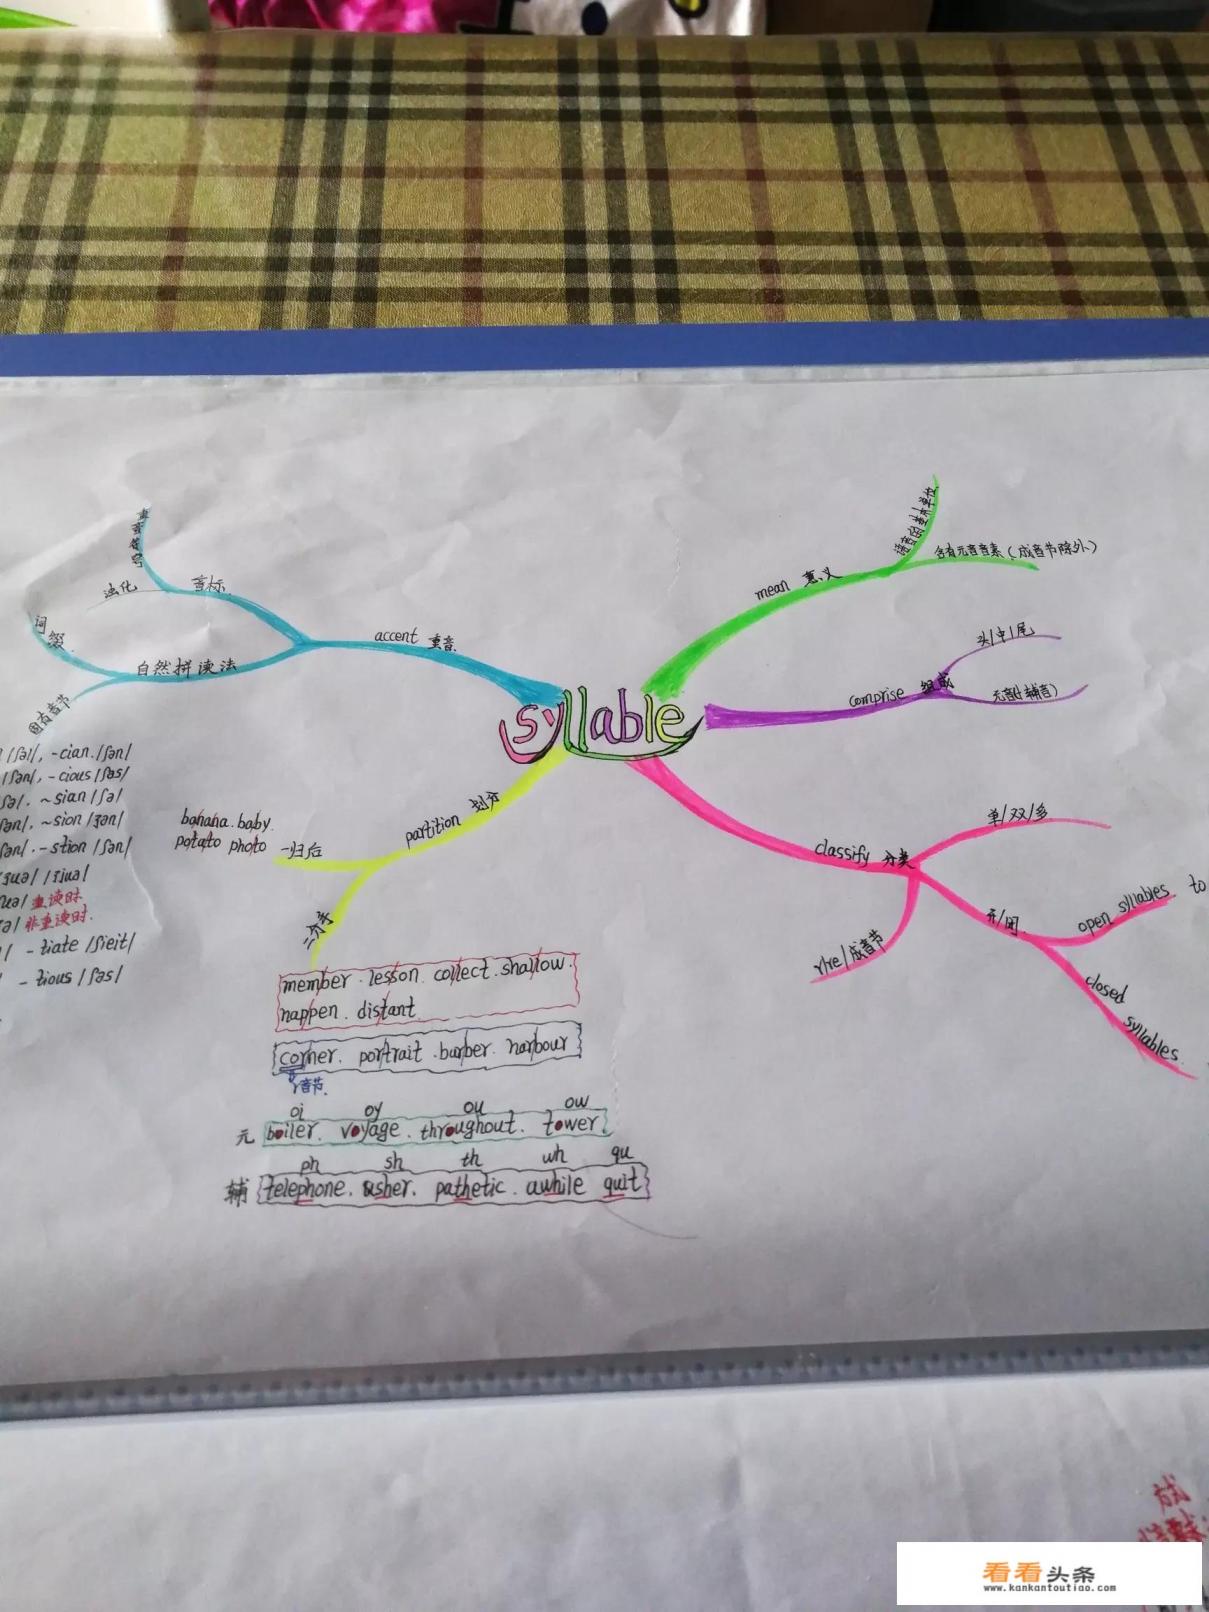 syllable
mean 意义
语音的基本单位
含有元音音素(成音节除外)
comprise 组成
头/中/尾
元音(辅音)
classify 分类
单/双/多
开/闭
open syllables to
closed
syllables
r/re/成音节
partition 划分
一归后
banana. baby.
potato photo
二分手
member. lesson. collect. shallow.
happen. distant
corner. portrait. barber. harbour
r音节.
oi oy ou ow
元 boiler. voyage. throughout. tower.
ph sh th wh qu
辅 telephone. usher. pathetic. awhile quit
accent 重音
音标
重音符号
浊化
自然拼读法
词缀.
固有音节
/ʃəl/, -cian /ʃən/
/ʃən/, -cious /ʃəs/
ʃə/. ~sian /ʃə/
ʃən/. ~sion /ʒən/
ʃən/. -stion /ʃən/
ʒuə/ /ʒiuə/
重读时.
非重读时.
-tiate /ʃieit/
-tious /ʃəs/
看看头条
www.kankantoutiao.com